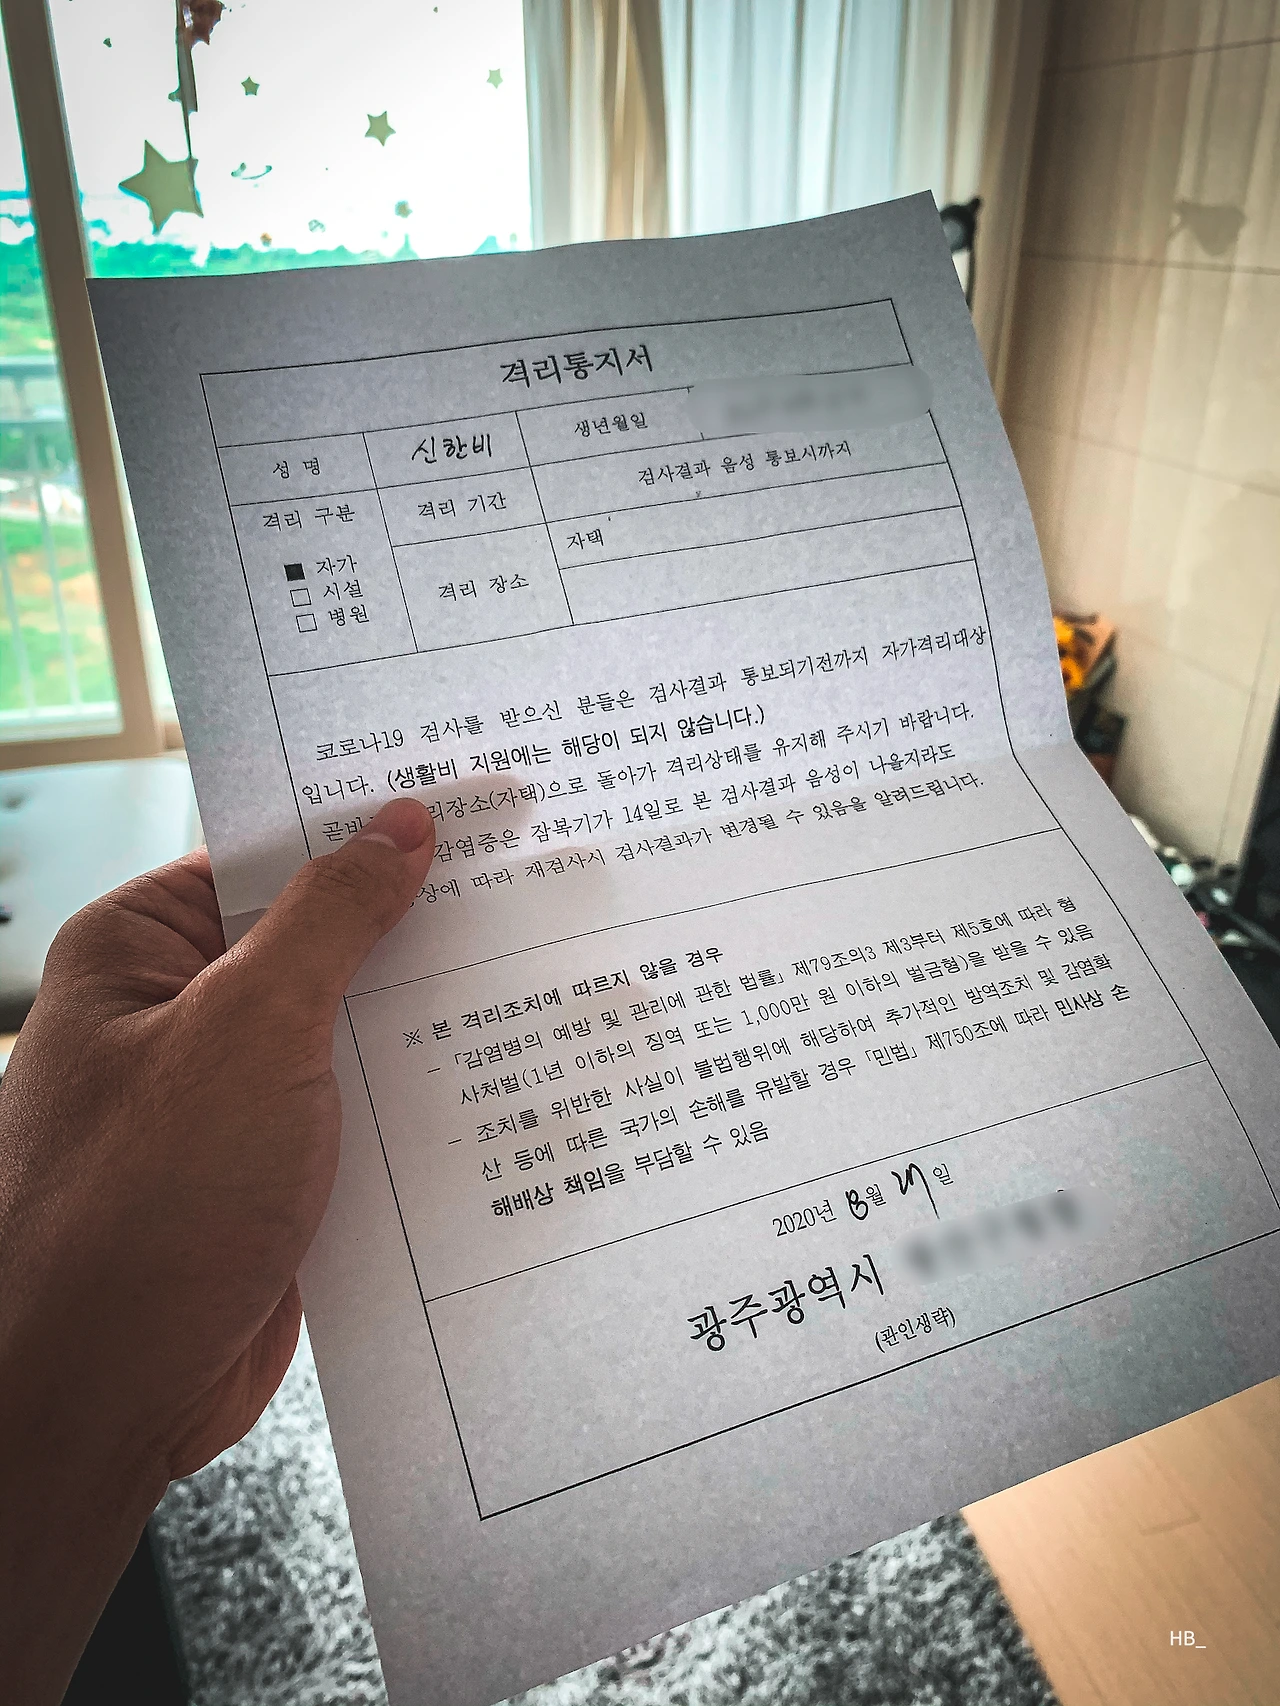 격리통지서
성 명 신한비 생년월일
격리 구분 격리 기간 검사결과 음성 통보시까지
■ 자가
□ 시설
□ 병원
격리 장소 자택
코로나19 검사를 받으신 분들은 검사결과 통보되기전까지 자가격리대상
입니다. (생활비 지원에는 해당이 되지 않습니다.)
리장소(자택)으로 돌아가 격리상태를 유지해 주시기 바랍니다.
감염증은 잠복기가 14일로 본 검사결과 음성이 나올지라도
따라 재검사시 검사결과가 변경될 수 있음을 알려드립니다.
※ 본 격리조치에 따르지 않을 경우
- 「감염병의 예방 및 관리에 관한 법률」 제79조의3 제3부터 제5호에 따라 형
사처벌(1년 이하의 징역 또는 1,000만 원 이하의 벌금형)을 받을 수 있음
- 조치를 위반한 사실이 불법행위에 해당하여 추가적인 방역조치 및 감염확
산 등에 따른 국가의 손해를 유발할 경우 「민법」 제750조에 따라 민사상 손
해배상 책임을 부담할 수 있음
2020년 8월 일
광주광역시
(관인생략)
HB_